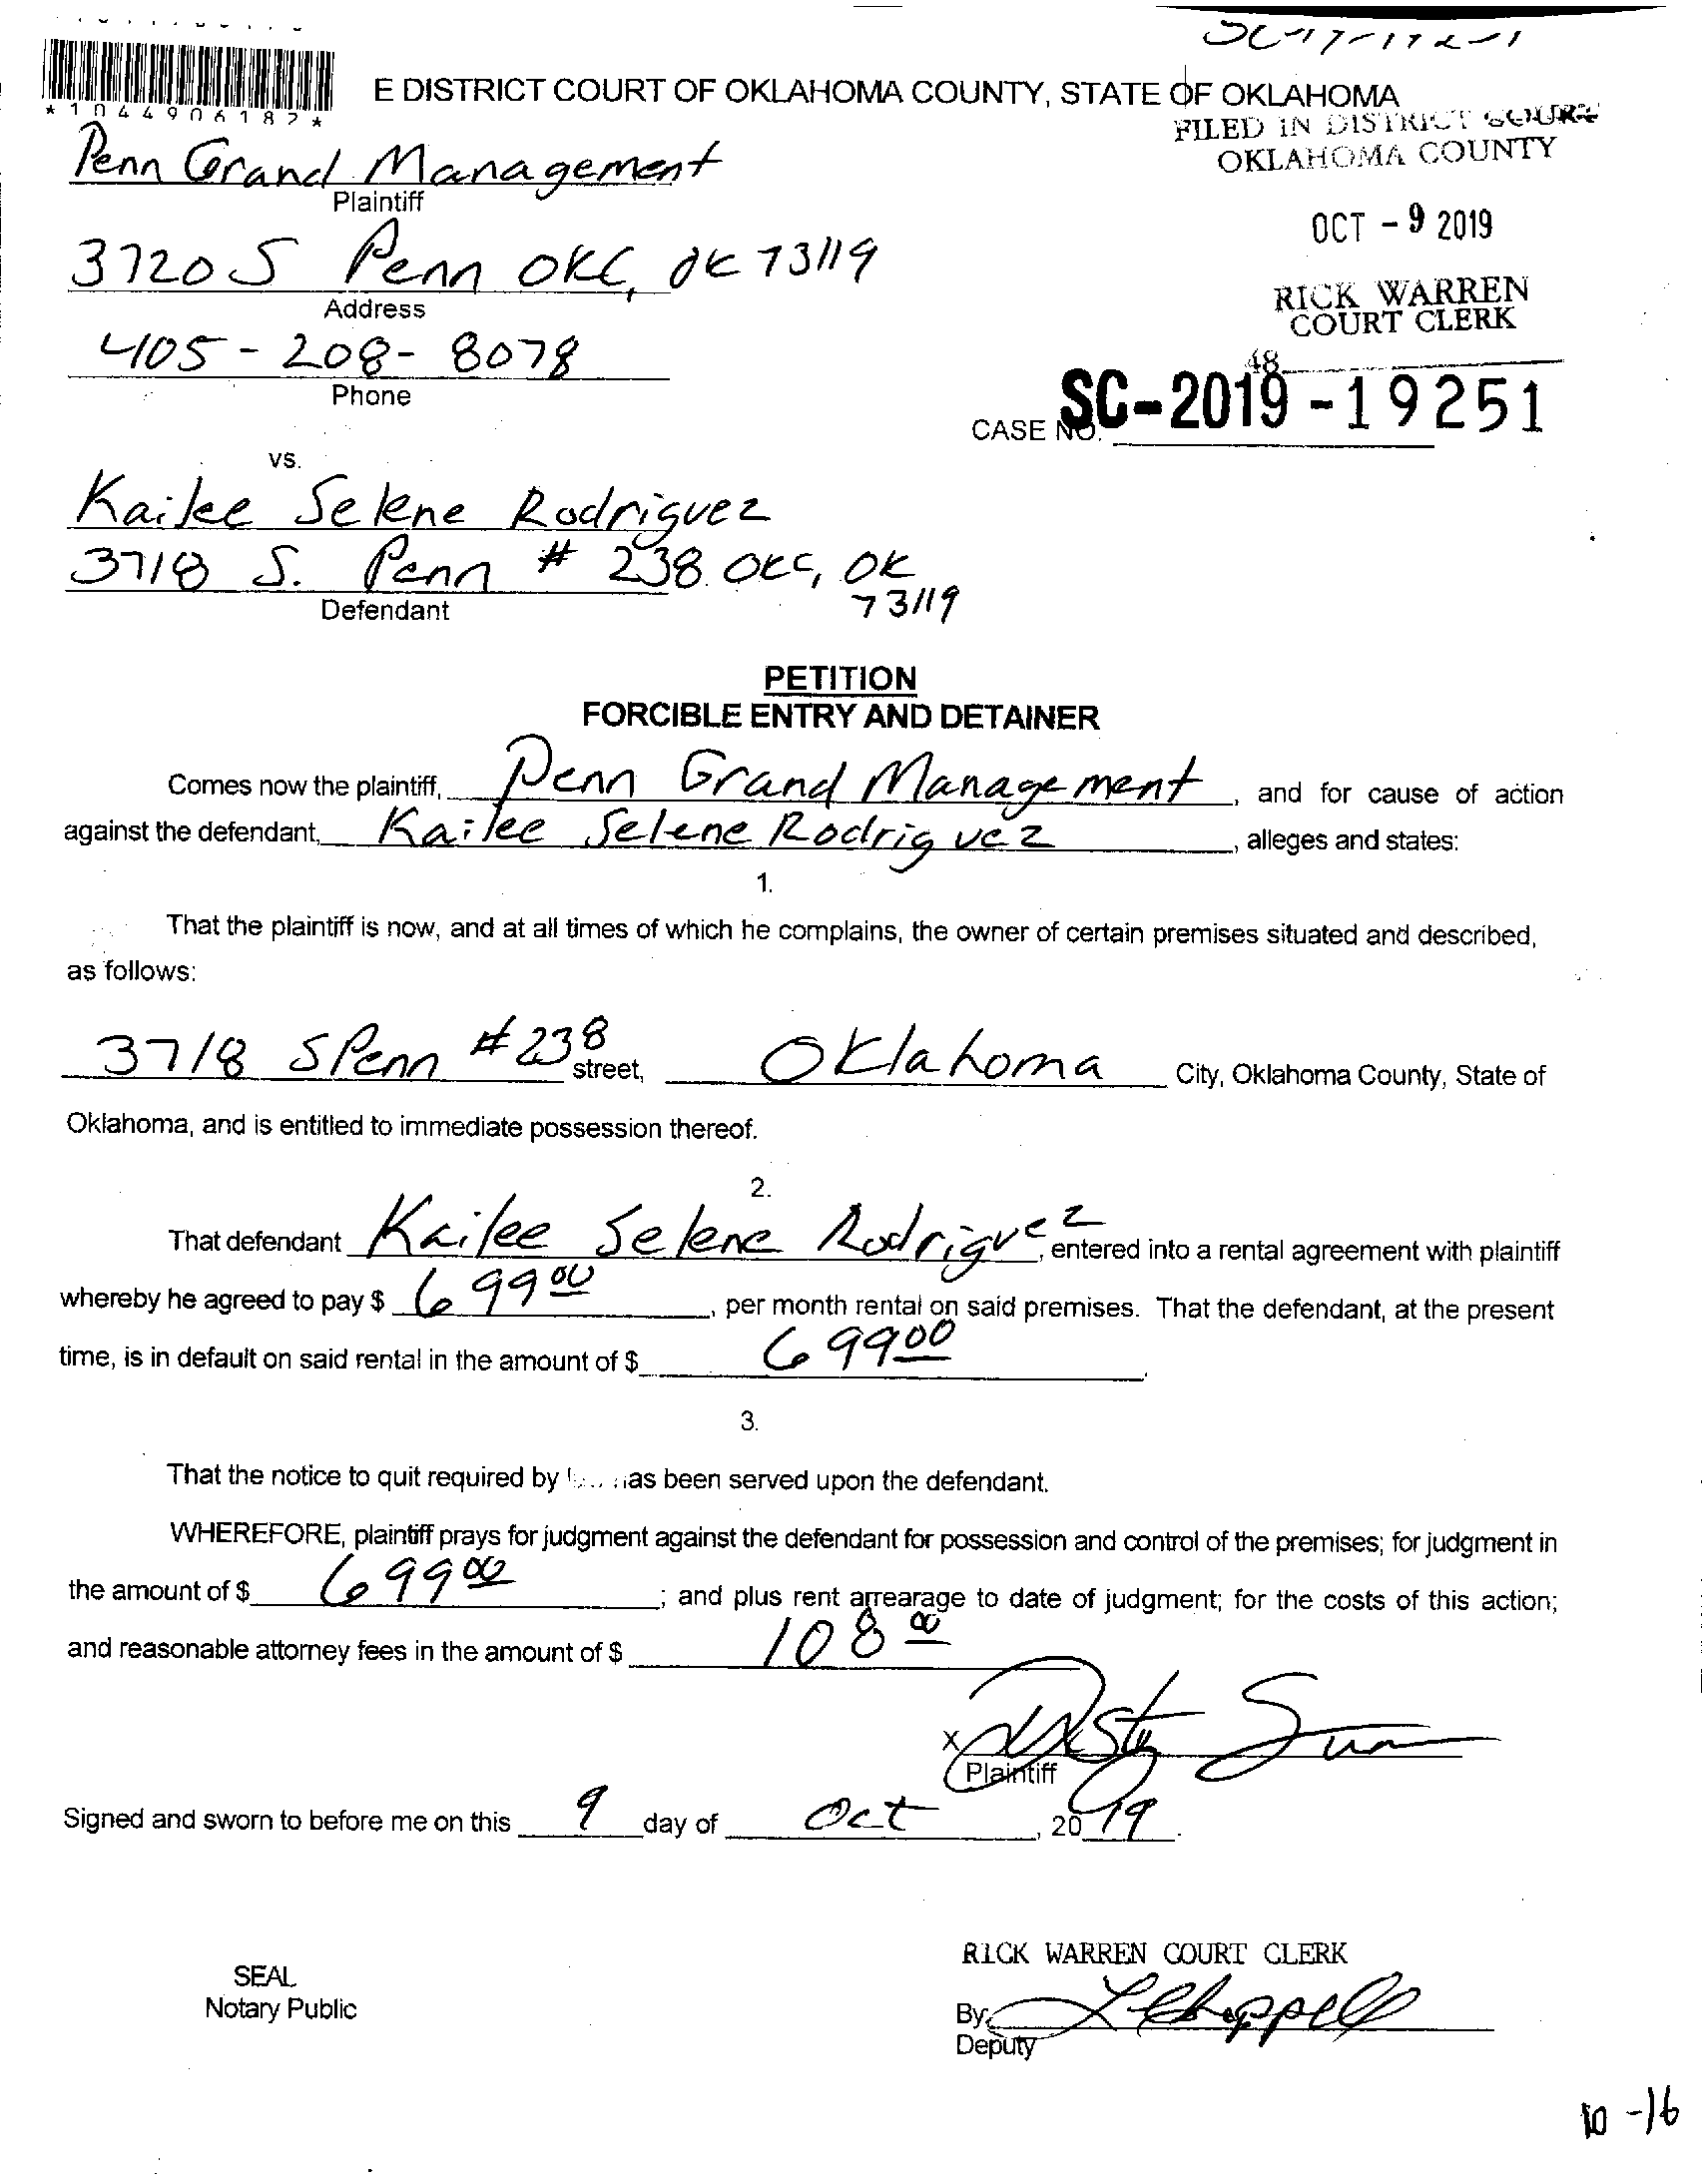 *1044906187*
E DISTRICT COURT OF OKLAHOMA COUNTY, STATE OF OKLAHOMA
FILED IN DISTRICT COURT
OKLAHOMA COUNTY
Penn Grand Management
Plaintiff
OCT - 9 2019
3720 S Penn OKC, OK 73119
Address
RICK WARREN
COURT CLERK
405-208-8078
Phone
48
CASE NO. SC-2019-19251
vs.
Kailee Selene Rodriguez
3718 S. Penn # 238 OKC, OK
73119
Defendant
PETITION
FORCIBLE ENTRY AND DETAINER
Comes now the plaintiff, Penn Grand Management, and for cause of action
against the defendant, Kailee Selene Rodriguez, alleges and states:
1.
That the plaintiff is now, and at all times of which he complains, the owner of certain premises situated and described,
as follows:
3718 S Penn #238 street, Oklahoma City, Oklahoma County, State of
Oklahoma, and is entitled to immediate possession thereof.
2.
That defendant Kailee Selene Rodriguez, entered into a rental agreement with plaintiff
whereby he agreed to pay $ 699 00, per month rental on said premises. That the defendant, at the present
time, is in default on said rental in the amount of $ 699 00.
3.
That the notice to quit required by has been served upon the defendant.
WHEREFORE, plaintiff prays for judgment against the defendant for possession and control of the premises; for judgment in
the amount of $ 699 00; and plus rent arrearage to date of judgment; for the costs of this action;
and reasonable attorney fees in the amount of $ 108 00
X
Plaintiff
Signed and sworn to before me on this 9 day of Oct, 2019.
RICK WARREN COURT CLERK
SEAL
Notary Public
By: L Chappell
Deputy
10-16